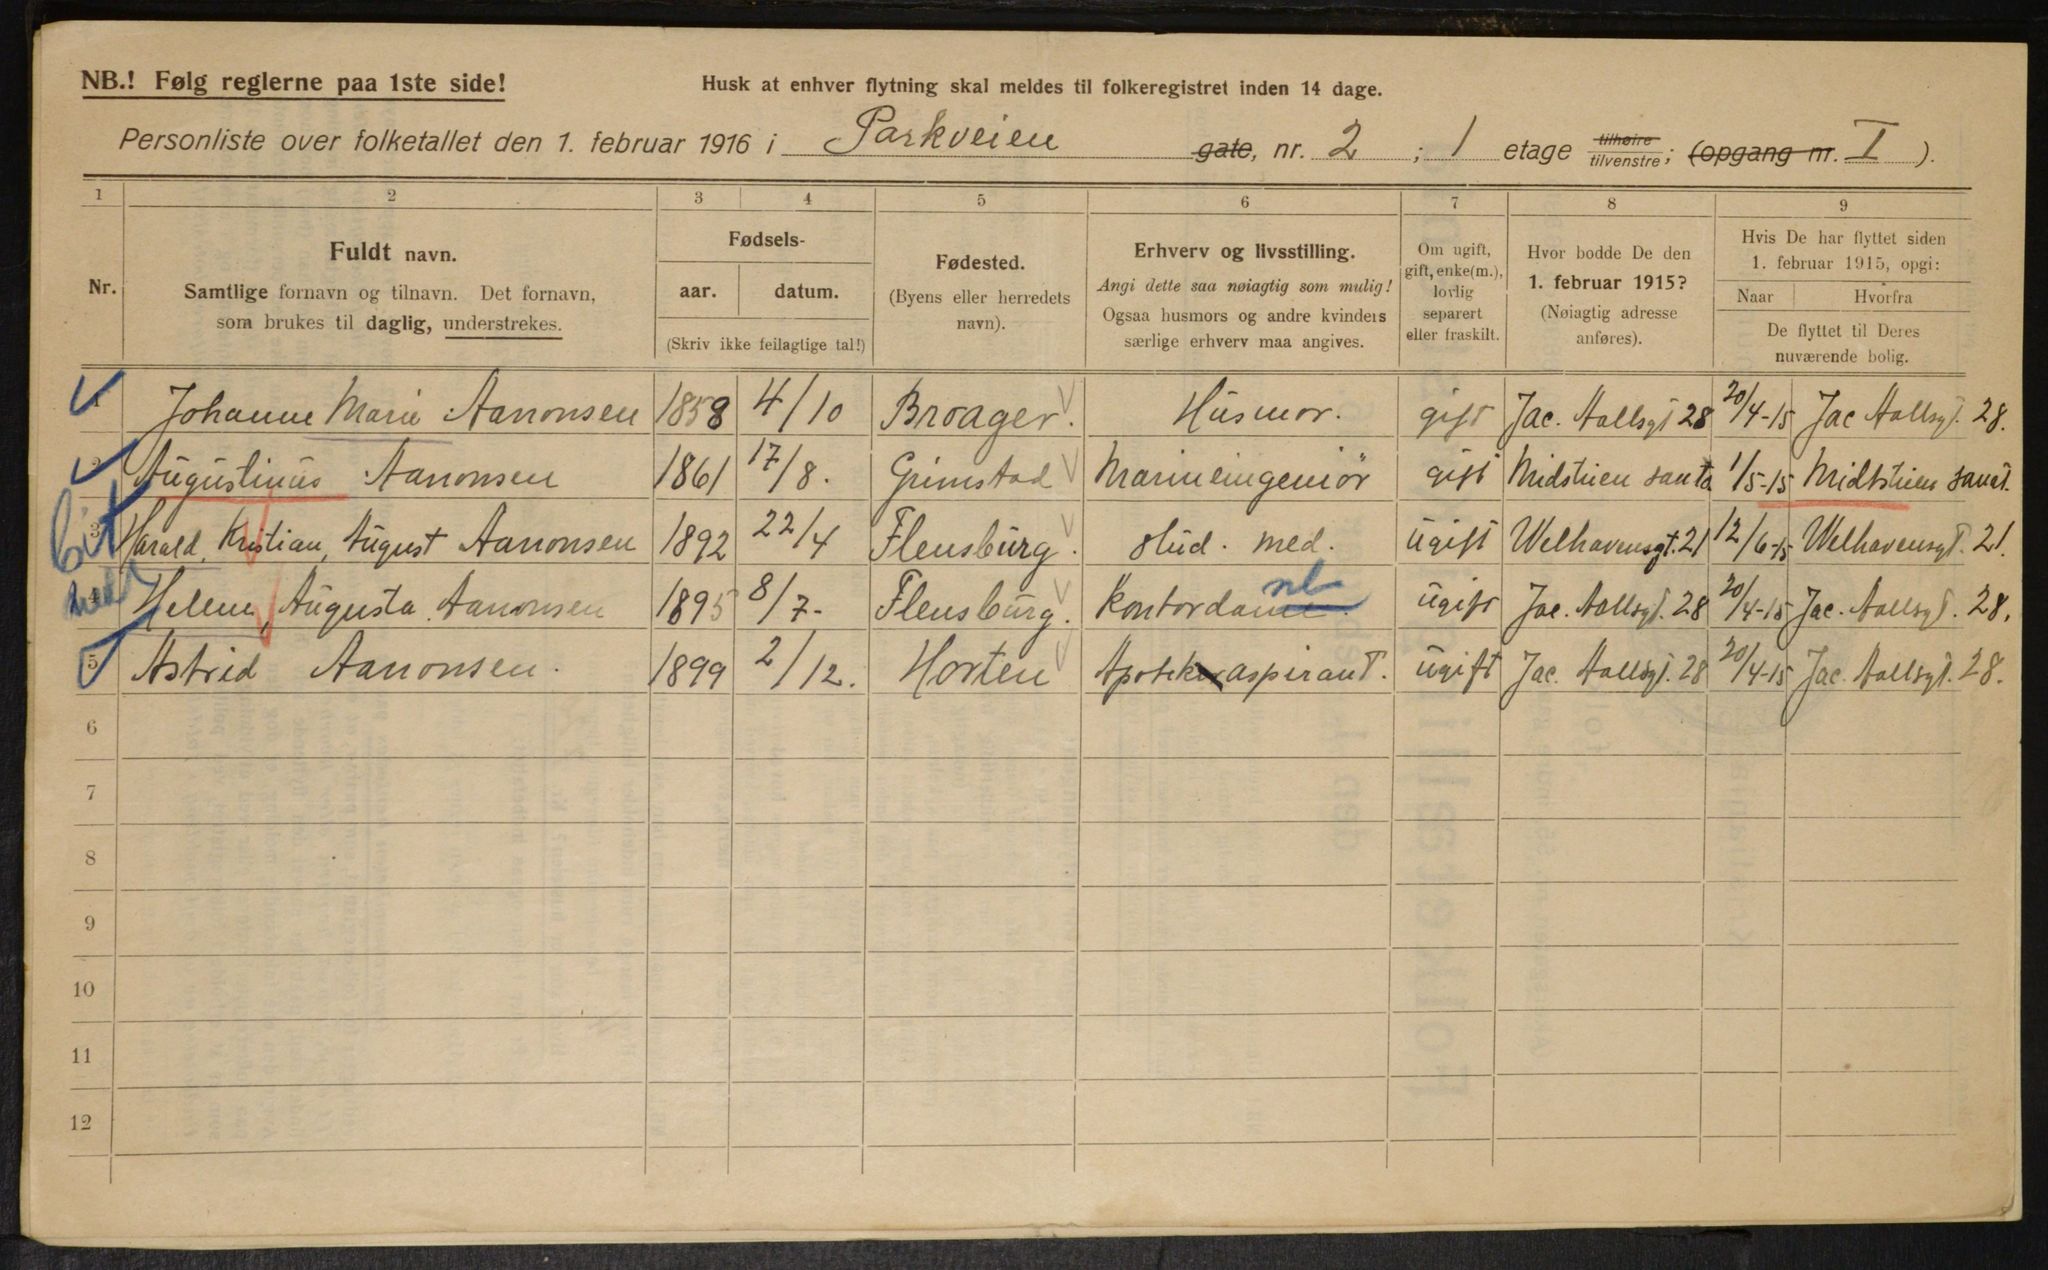 NB.! Følg reglerne paa 1ste side!
Husk at enhver flytning skal meldes til folkeregistret inden 14 dage.
Personliste over folketallet den 1. februar 1916 i Parkveien gate, nr. 2 ; 1 etage tilhøire tilvenstre; (opgang nr. I ).
1 2 3 4 5 6 7 8 9
Nr.
Fuldt navn.
Samtlige fornavn og tilnavn. Det fornavn,
som brukes til daglig, understrekes.
Fødsels-
aar. datum.
(Skriv ikke feilagtige tal!)
Fødested.
(Byens eller herredets
navn).
Erhverv og livsstilling.
Angi dette saa nøiagtig som mulig!
Ogsaa husmors og andre kvinders
særlige erhverv maa angives.
Om ugift,
gift, enke(m.),
lovlig
separert
eller fraskilt.
Hvor bodde De den
1. februar 1915?
(Nøiagtig adresse
anføres).
Hvis De har flyttet siden
1. februar 1915, opgi:
Naar Hvorfra
De flyttet til Deres
nuværende bolig.
1 Johanne Marie Aanonsen 1858 4/10 Broager. Husmor. gift Jac. Aallsgt 28 20/4-15 Jac Aallsgt. 28.
2 Augustinus Aanonsen 1861 17/8. Grimstad Marineingeniør gift Midstuen santa 1/5-15 Midtstuen sanat.
3 Harald, Kristian, August Aanonsen 1892 22/4 Flensburg. stud. med. ugift Welhavensgt. 21 12/6-15 Welhavensgt. 21.
4 Helene, Augusta Aanonsen 1895 8/7- Flensburg. Kontordame. ugift Jac. Aallsgt. 28 20/4-15 Jac. Aallsgt. 28.
5 Astrid Aanonsen. 1899 2/12. Horten Apotekaspirant. ugift Jac. Aallsgt. 28 20/4-15 Jac. Aallsgt. 28.
6
7
8
9
10
11
12